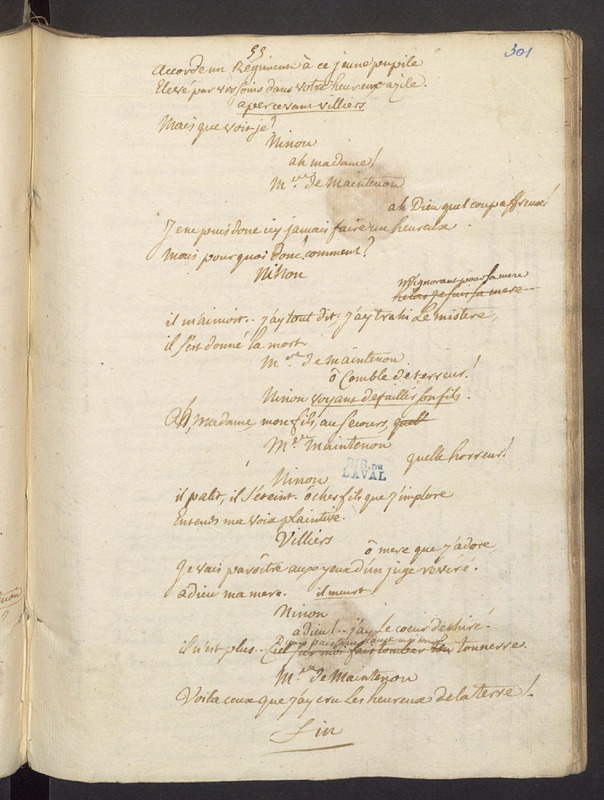 55
301
accorde un Régiment à ce jeune pupile
Elevé par vos soins dans votre heureux azile.
apercevant villiers
Mais que vois-je?
Ninon
ah madame!
Mme de Maintenon
ah Dieu quel coup affreux!
Je ne puis donc icy jamais faire un heureux
Mais pourquoi donc, comment?
Ninon
m'ignorant pour sa mere
helas je suis sa mere
il m'aimoit.. j'ay tout dit, j'ay trahi Le mistere,
il s'est donné la mort
Mme de maintenon
ô Comble de terreur!
Ninon voyant defaillir son fils.
Ah, Madame, mon fils, au secours, quell
Mme Maintenon
quelle horreur!
BIB. DE
LAVAL
Ninon
il palit, il s'éteint. ô cher fils que j'implore
Entends ma voix plaintive.
Villiers
ô mere que j'adore,
Je vais paroître aux yeux d'un juge révéré.
adieu ma mere. il meurt
Ninon
adieu!.. j'ay Le coeur dechiré!
il n'est plus.. Ciel sur moi fais tomber ton tonnerre.
Mme de Maintenon
Voila ceux que j'ay cru les heureux de la terre!
fin